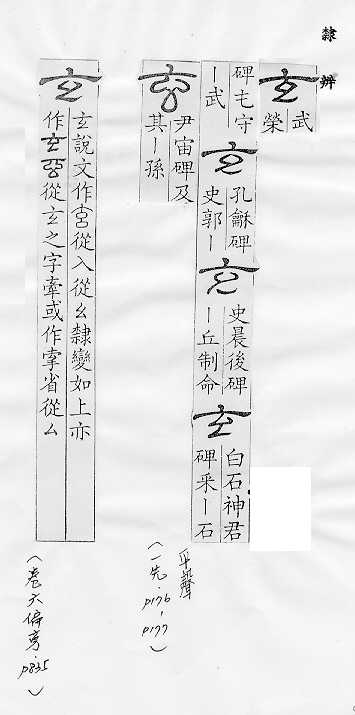 隸辨
玄 武榮
碑屯守丨武
玄 孔龢碑史郭丨
玄 史晨後碑丨丘制命
玄 白石神君碑采丨石
玄 尹宙碑及其丨孫
平聲
(一先.p176-p177)
玄 玄說文作𤣥從入從幺隸變如上亦
作玄從玄之字牽或作㧅省從厶
(卷六偏旁.p835)